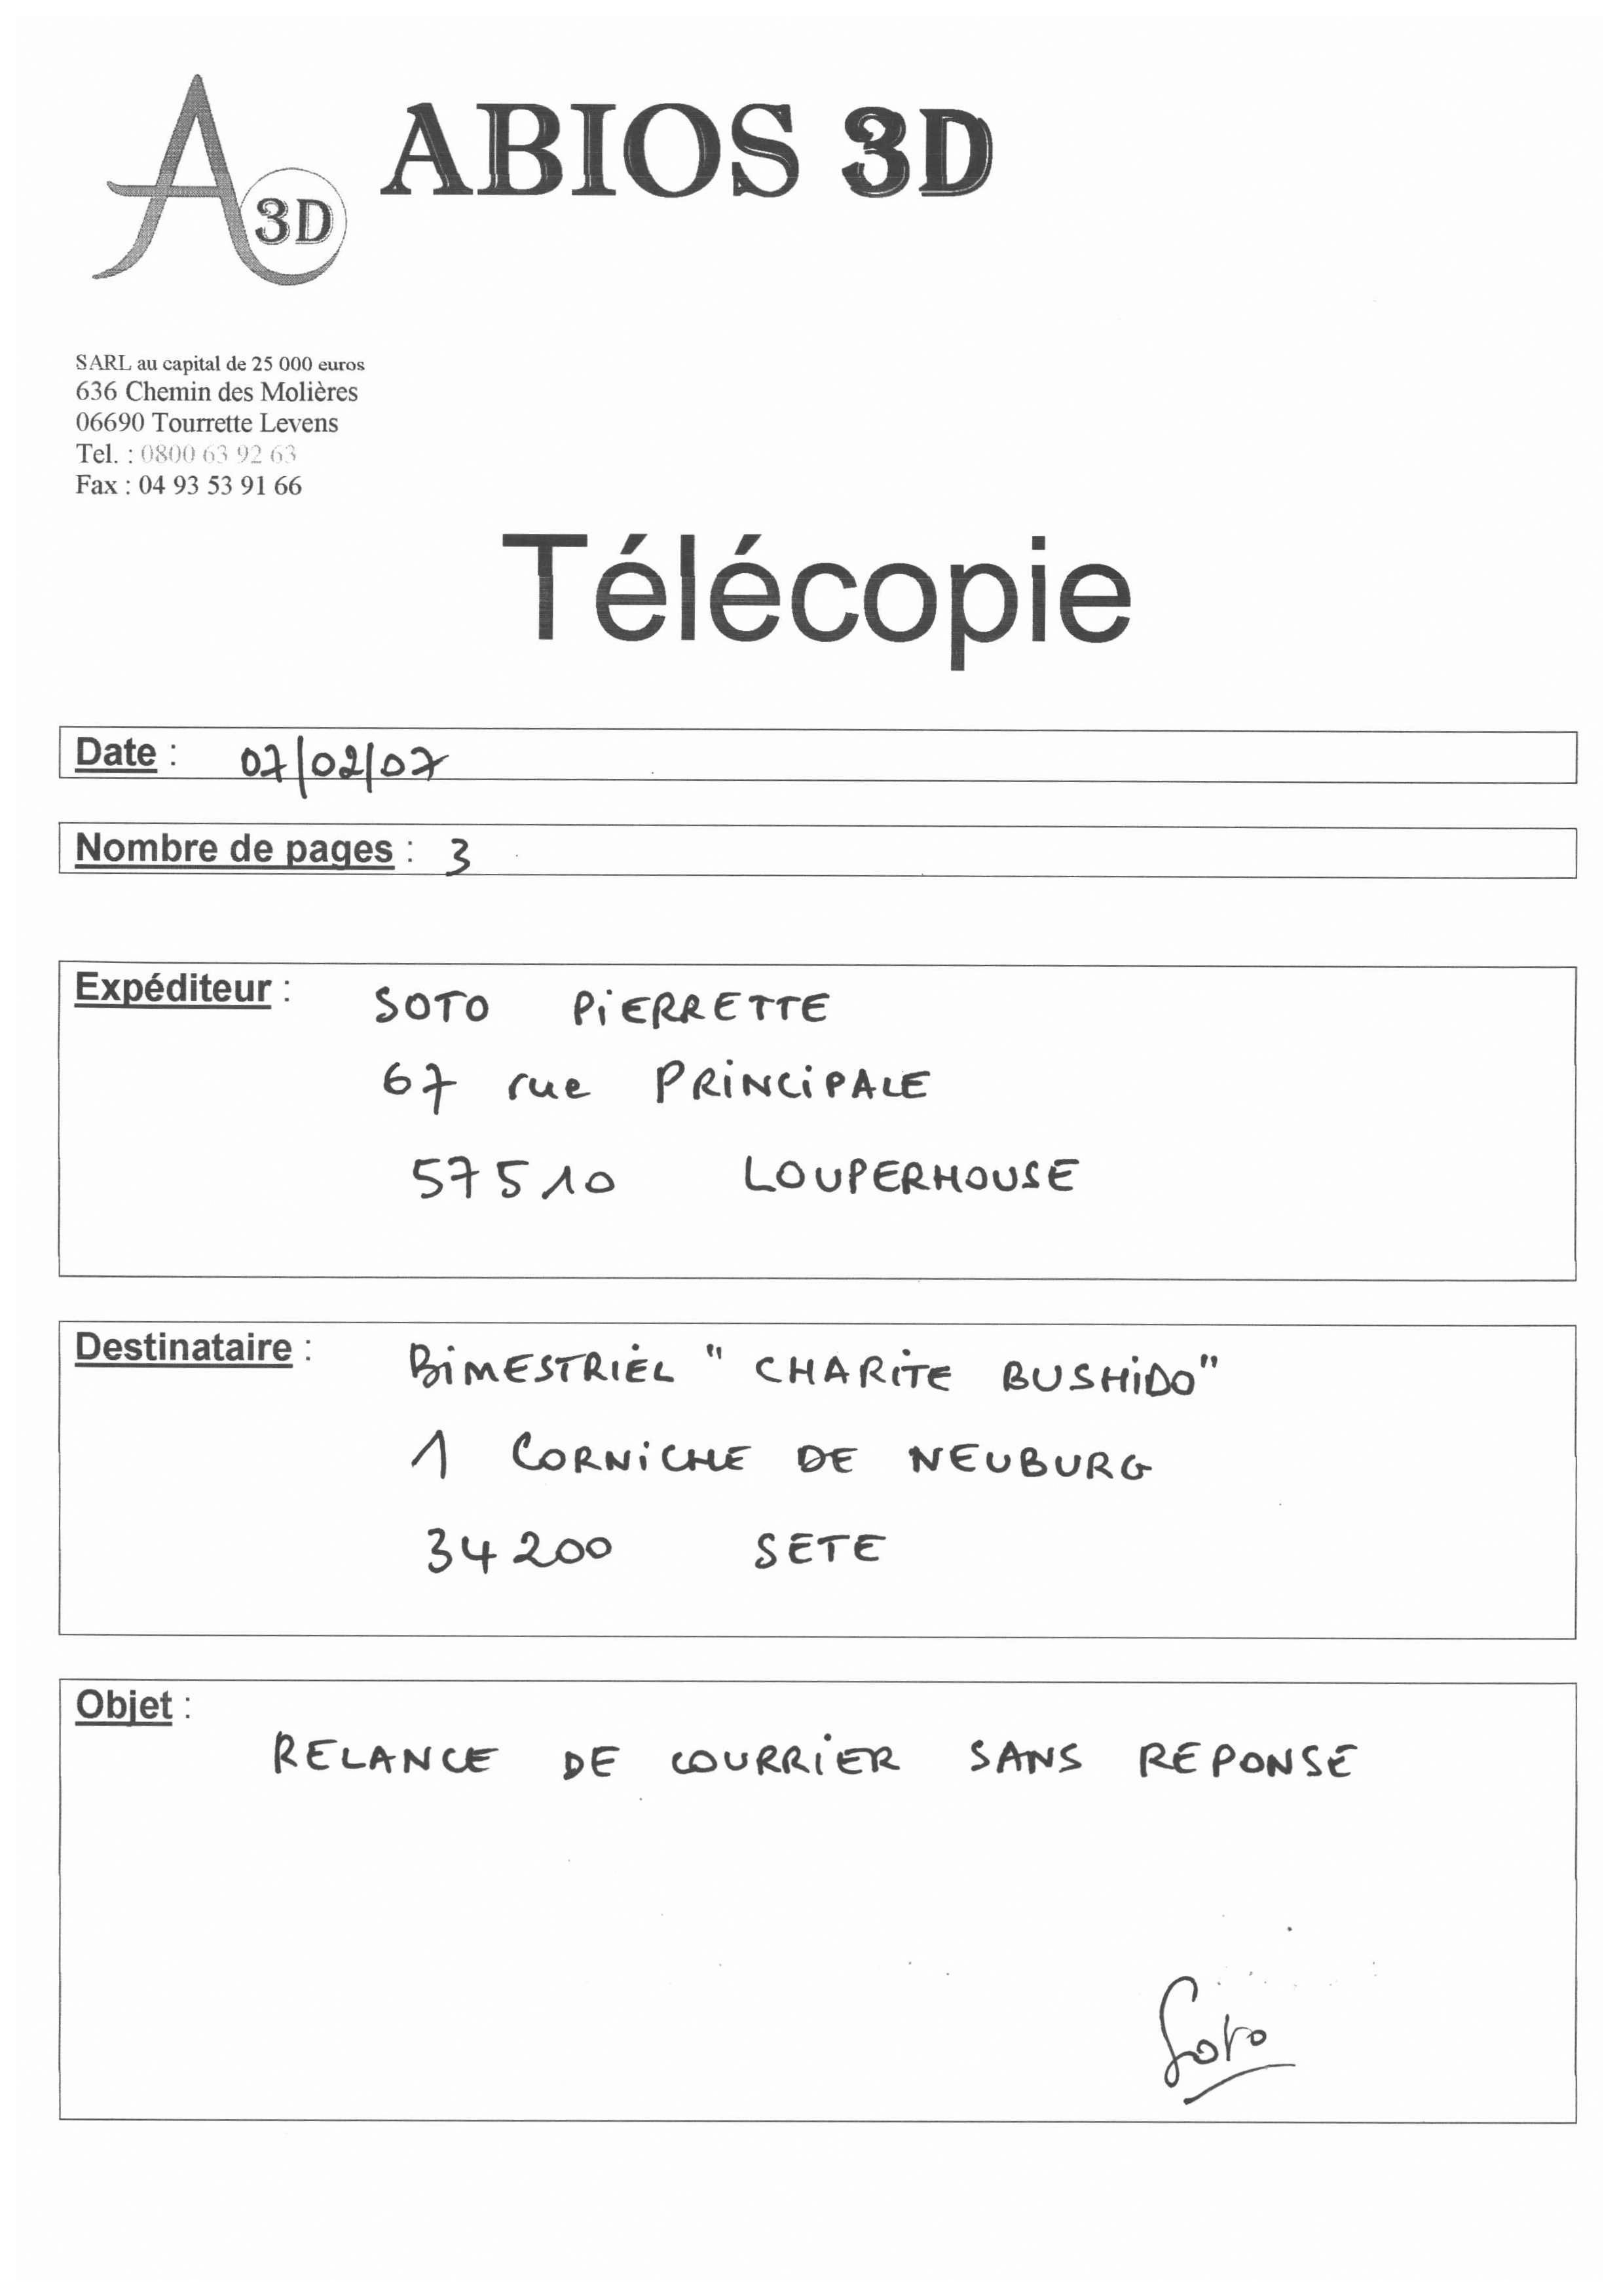 A 3D
ABIOS 3D
SARL au capital de 25 000 euros
636 Chemin des Molières
06690 Tourrette Levens
Tel. : 0800 63 92 63
Fax : 04 93 53 91 66
Télécopie
Date : 07/02/07
Nombre de pages : 3
Expéditeur : SOTO PiERRETTE
67 rue PRiNCiPALE
57510 LOUPERHOUSE
Destinataire : BiMESTRiEL " CHARiTE BUSHiDO"
1 CORNiCHE DE NEUBURG
34200 SETE
Objet :
RELANCE DE COURRiER SANS REPONSE
Soto